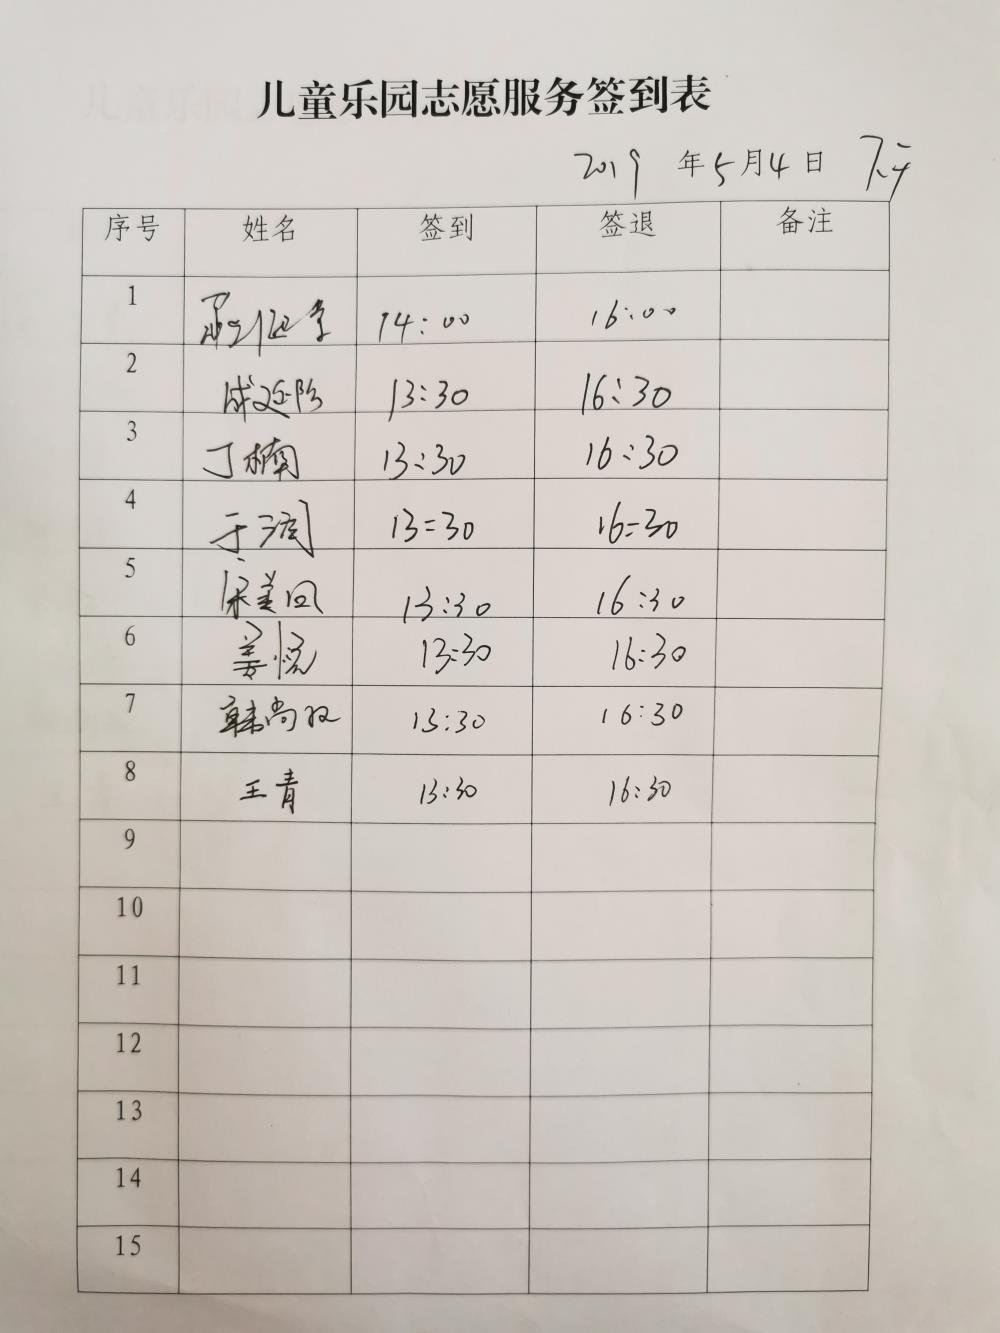 儿童乐园志愿服务签到表
2019 年 5 月 4 日 下午
序号 姓名 签到 签退 备注
1 14:00 16:00
2 13:30 16:30
3 丁楠 13:30 16:30
4 于润 13:30 16:30
5 宋美凤 13:30 16:30
6 姜悦 13:30 16:30
7 韩尚 13:30 16:30
8 王青 13:30 16:30
9
10
11
12
13
14
15